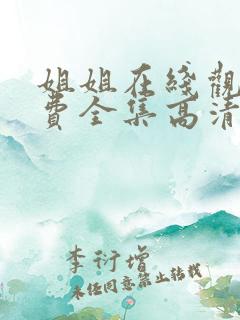 姐姐在綫觀
費全集高清
李衍增
未經同意禁止轉載